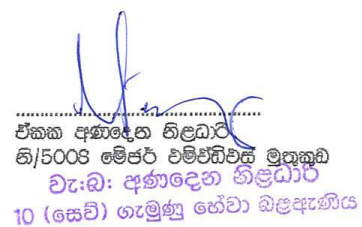 ඒකක අණදෙන නිළධාරි
නි/5008 මේජර් එම්ඒඩීඑස් මුතුකුඩ
වැ:බ: අණදෙන නිළධාරි
10 (සෙව්) ගැමුණු හේවා බළඇණිය